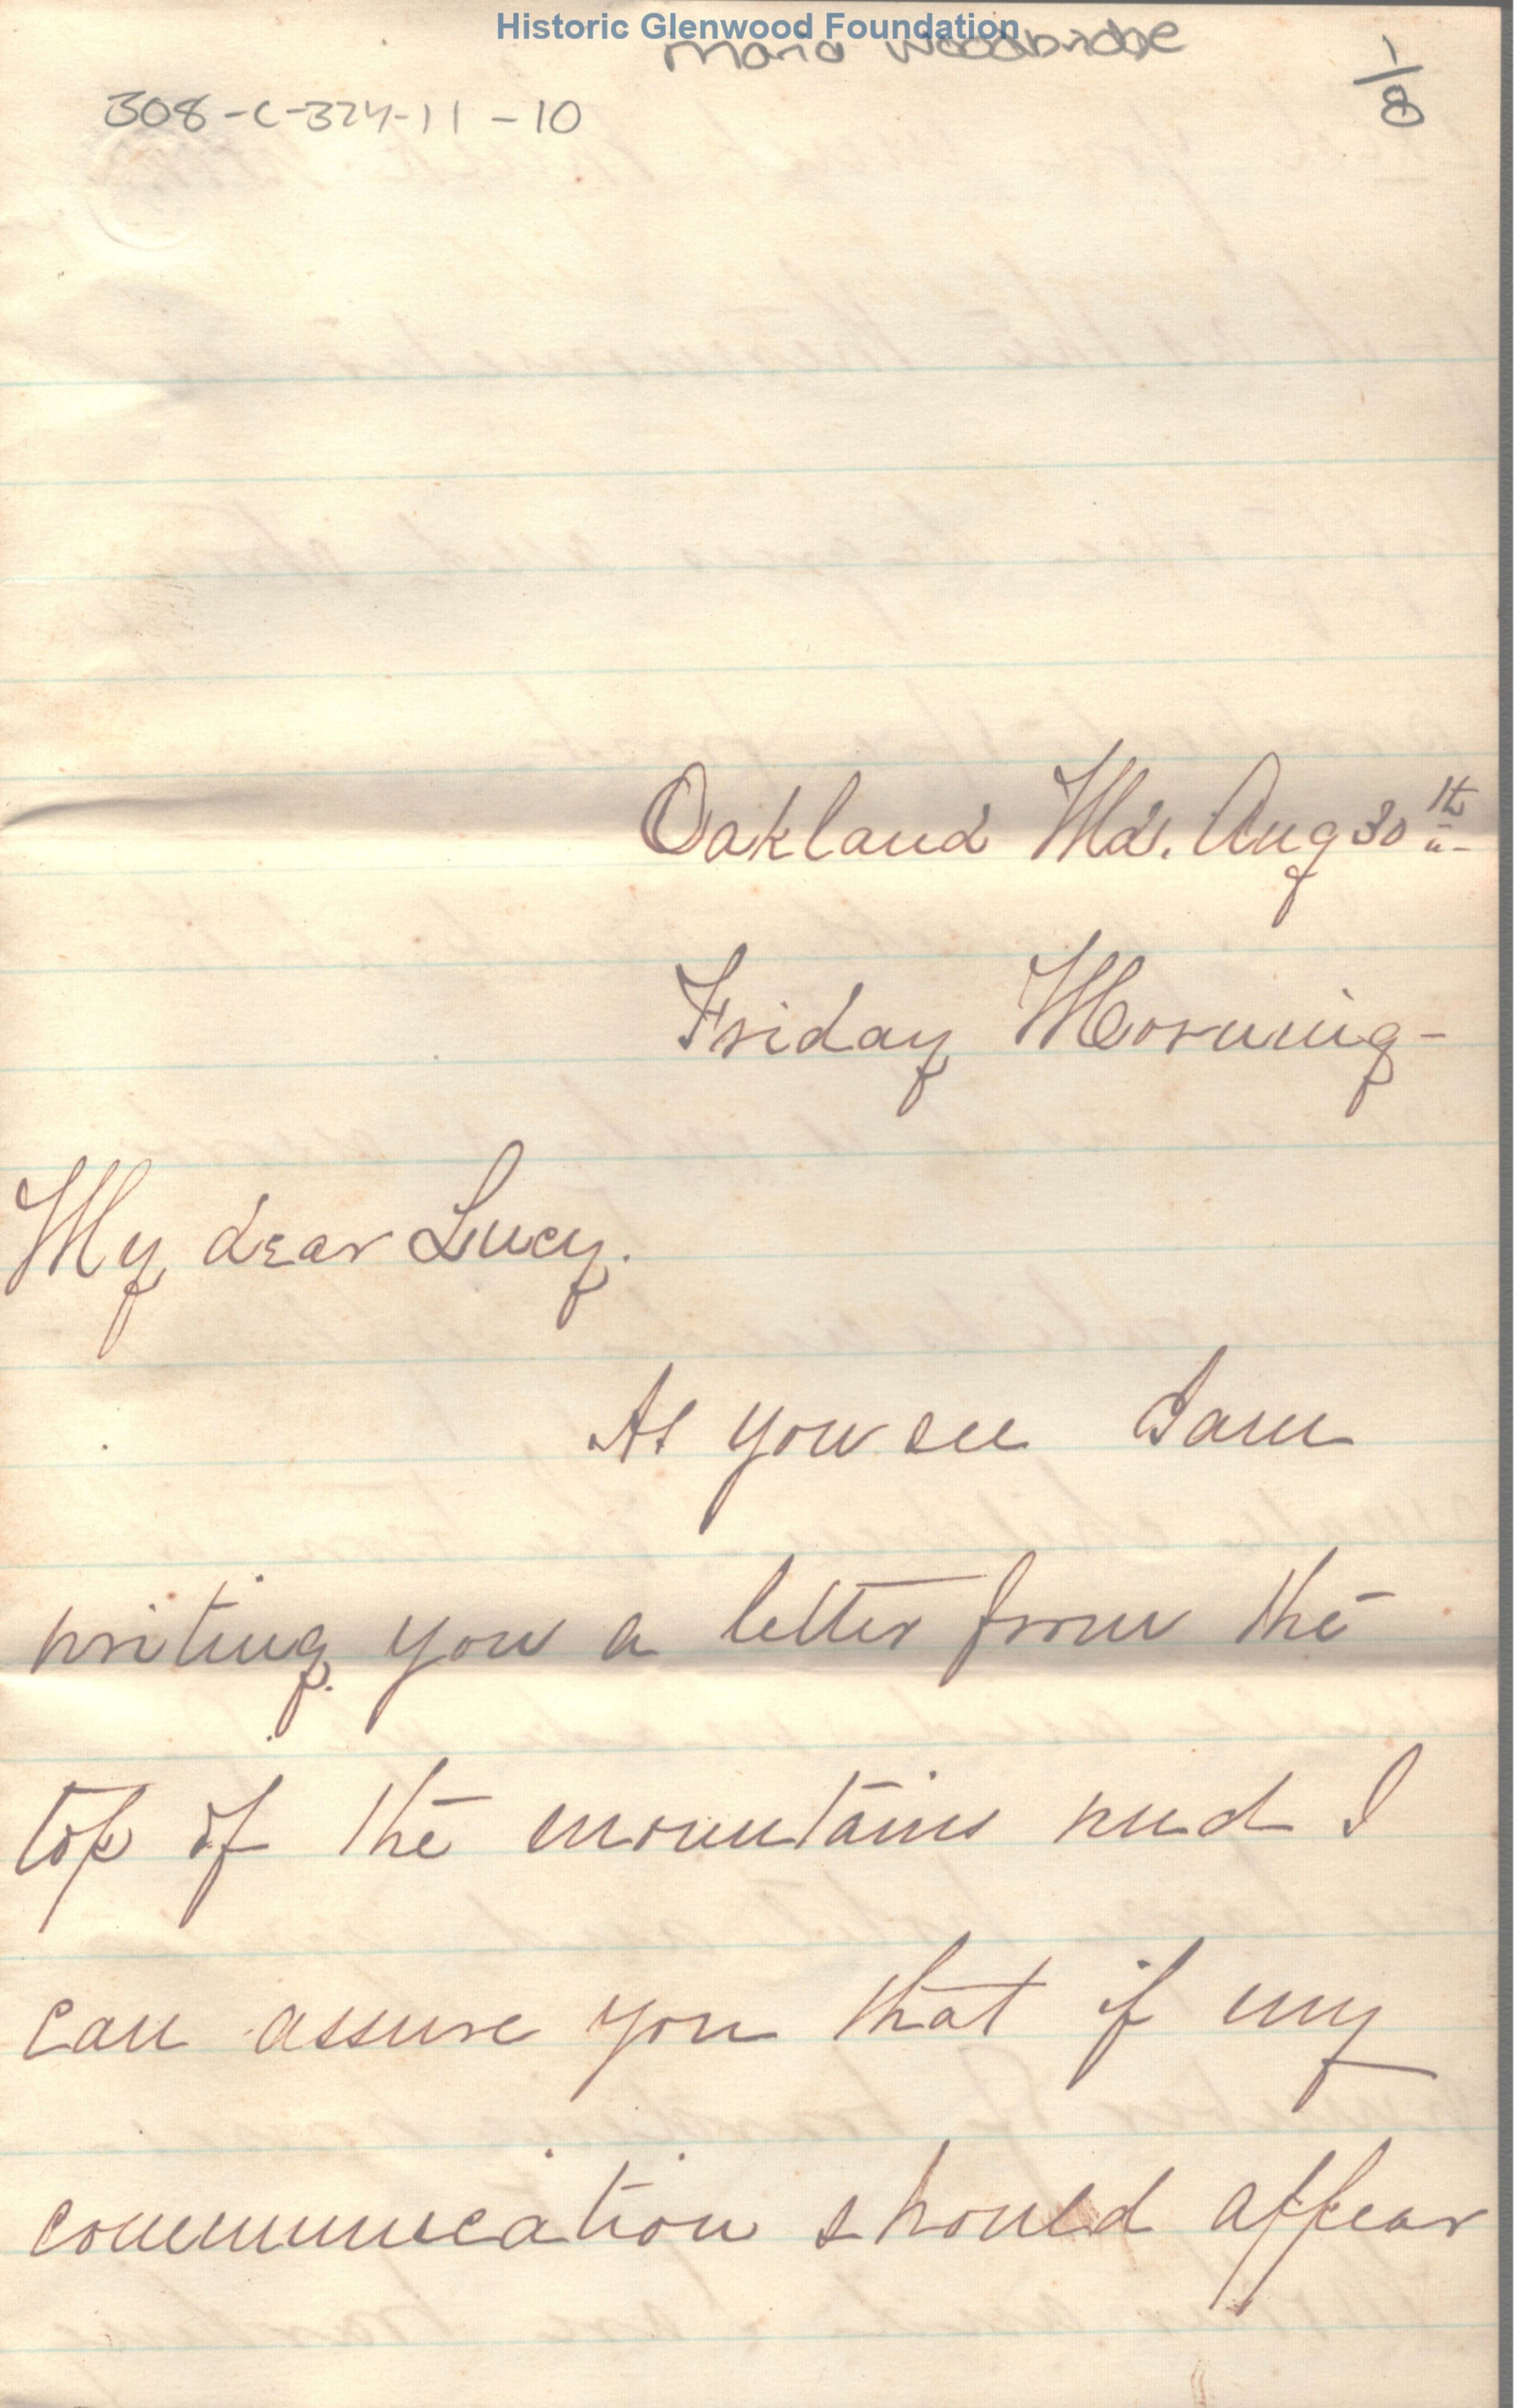 Historic Glenwood Foundation
Maria Woodbridge
1/8
308-C-324-11-10
Oakland Md. Aug 30th
Friday Morning-
My dear Lucy.
As you see I am
writing you a letter from the
top of the mountains and I
can assure you that if my
communication should appear